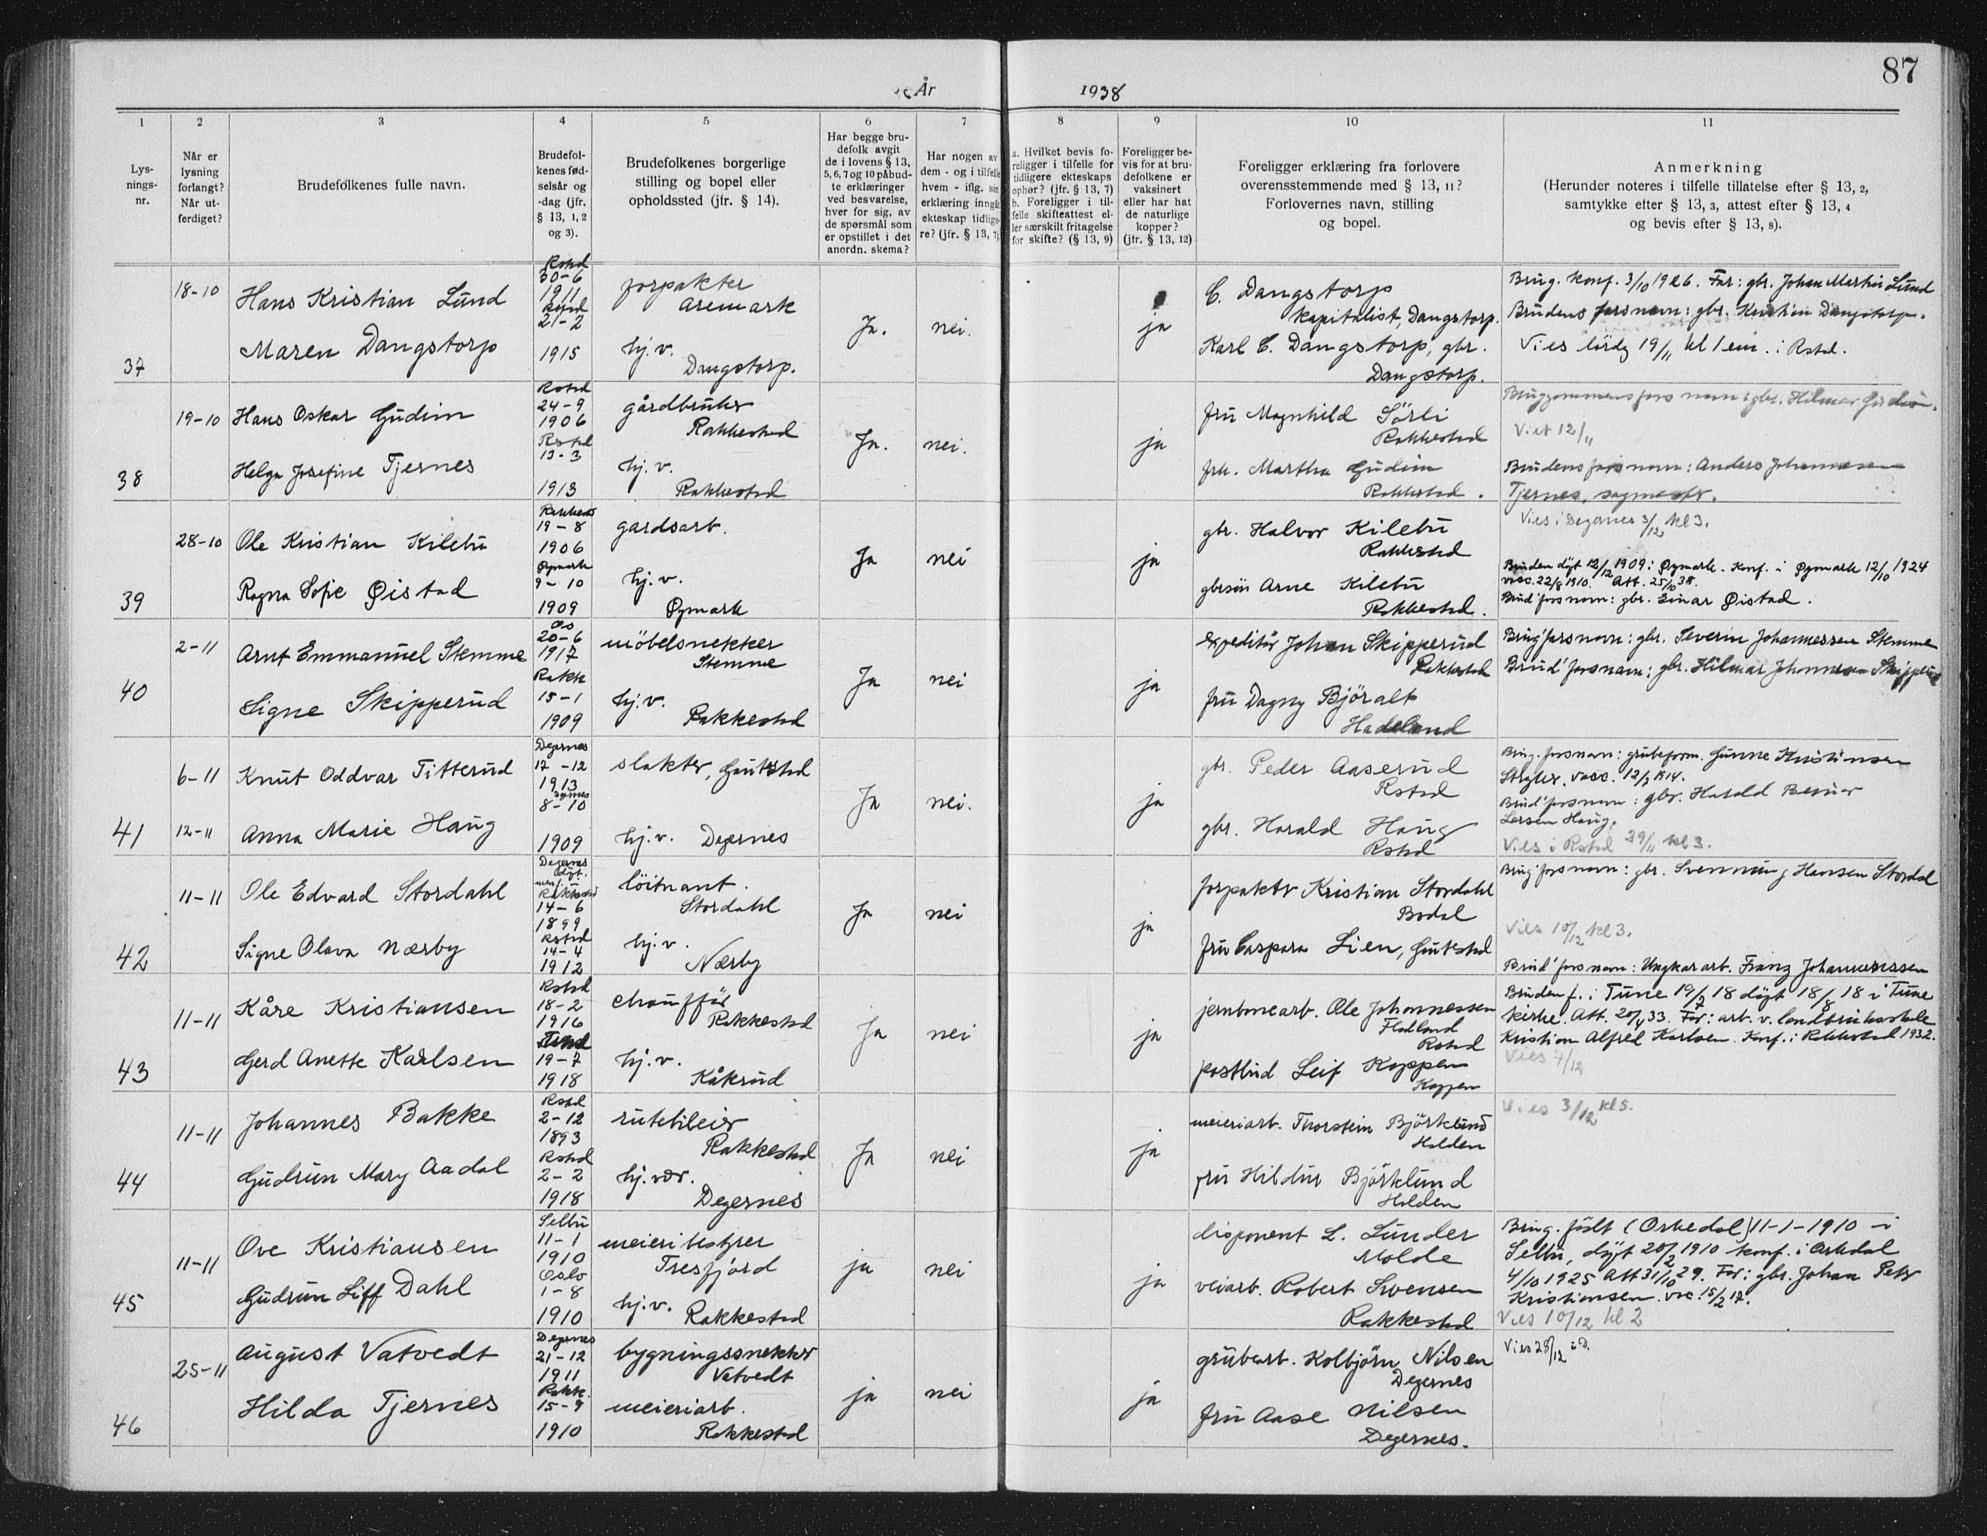 87
År 1938
1 2 3 4 5 6 7 8 9 10 11
Lys-
nings-
nr.
Når er
lysning
forlangt?
Når ut-
ferdiget?
Brudefolkenes fulle navn.
Brudefol-
kenes fød-
selsår og
-dag (jfr.
§ 13, 1, 2
og 3).
Brudefolkenes borgerlige
stilling og bopel eller
opholdssted (jfr. § 14).
Har begge bru-
defolk avgit
de i lovens § 13,
5, 6, 7 og 10 påbud-
te erklæringer
ved besvarelse,
hver for sig, av
de spørsmål som
er opstillet i det
anordn. skema?
Har nogen av
dem - og i tilfelle
hvem - iflg. sin
erklæring inngå
ekteskap tidlige-
re? (jfr. § 13, 7)
a. Hvilket bevis fo-
religger i tilfelle for
tidligere ekteskaps
ophør? (jfr. § 13, 7)
b. Foreligger i til-
felle skifteattest el-
ler særskilt fritagelse
for skifte? (§ 13, 9)
Foreligger be-
vis for at bru-
defolkene er
vaksinert
eller har hat
de naturlige
kopper?
(jfr. § 13, 12)
Foreligger erklæring fra forlovere
overensstemmende med § 13, 11?
Forlovernes navn, stilling
og bopel.
Anmerkning
(Herunder noteres i tilfelle tillatelse efter § 13, 2,
samtykke efter § 13, 3, attest efter § 13, 4
og bevis efter § 13, 8).
37
18-10
Hans Kristian Lund
Maren Dangstorp
Rstd
30-6
1911
Rstd
21-2
1915
forpakter
Aremark
hj.v.
Dangstorp.
Ja.
nei.
ja
C. Dangstorp
kapitalist, Dangstorp.
Karl C. Dangstorp, gbr.
Dangstorp.
Brug. konf. 3/10 1926. Far: gbr. Johan Martin Lund
Brudens fars navn: gbr. Kristian Dangstorp.
Vies lördg 19/11 kl 1 em. i Rstd.
38
19-10
Hans Oskar Gudim
Helga Josefine Tjernes
Rstd
24-9
1906
Rstd
13-3
1913
gårdbruker
Rakkestad
hj.v.
Rakkestad
Ja.
nei.
ja
fru Magnhild Sörli
Rakkestad
frk. Martha Gudim
Rakkestad.
Bruggommens fars navn: gbr. Hilmar Gudim.
Viet 12/11
Brudens fars navn: Anders Johannesen
Tjernes, sagmester.
39
28-10
Ole Kristian Kilebu
Ragna Sofie Øistad
19-8
1906
Øymark
9-10
1909
gardsarb.
hj.v.
Øymark
Ja
nei
ja
gbr. Halvor Kilebu
Rakkestad
gbrsön Arne Kilebu
Rakkestad.
Vies i Degernes 3/12 kl 3.
Bruden döpt 12/12 1909 i Øymark. Konf. i Øymark 12/10 1924
vacc. 22/8 1910. Att. 25/10 38.
Brud' fars navn: gbr. Einar Øistad.
40
2-11
Arnt Emmanuel Stemme
Signe Skipperud
Os
20-6
1917
Rakk
15-1
1909
möbelsnekker
Stemme
hj.v.
Rakkestad
Ja
nei
ja
expeditör Johan Skipperud
Rakkestad
fru Dagny Björalt
Hadeland
Brug' fars navn: gbr. Severin Johannessen Stemme
Brud' fars navn: gbr. Hilmar Johannesen Skipperud
41
6-11
12-11
Knut Oddvar Titterud
Anna Marie Haug
Degernes
17-12
1913
8-10
1909
slakter, Gautestad
hj.v. Degernes
Ja
nei.
ja
gbr. Peder Aaserud
Rstad
gbr. Harald Haug
Rstad
Brug. fars navn: grubeform. Gunne Kristiansen
vacc. 12/3 1914.
Brud' fars navn: gbr. Harald Bernar
Larsen Haug.
Vies i Rstad 29/11 kl 3.
42
11-11
Ole Edvard Stordahl
Signe Olava Nærby
Degernes
Döpt.
Rakkestad
14-6
1899
Rstad
14-4
1912
löitnant.
Stordahl
hj.v.
Nærby
Ja
nei
ja
forpakter Kristian Stordahl
Bodal
fru Caspara Lien, Gautestad
Brug' fars navn: gbr. Svennung Hansen Stordal
Vies 10/12 kl 3.
Brud' fars navn: Ungkar arb. Franz Johannessen
43
11-11
Kåre Kristiansen
Gerd Anette Karlsen
Rstd
18-2
1916
19-7
1918
chaufför
Rakkestad
hj.v.
Kåkrud
Ja
nei
ja
jernbanearb. Ole Johannessen
Fladland
Rstad
postbud Leif Koppen
Koppen
Bruden f. i Tune 19/7 18 döpt 18/8 18 i Tune
kirke. Att. 20/4 33. Far: arb. v. landbruksskole
Kristian Alfred Karlsen. Konf. i Rakkestad 1932.
Vies 4/12
44
11-11
Johannes Bakke
Gudrun Mary Aadal
Rstd
2-12
1893
Rstad
2-2
1918
rutebileier
Rakkestad
hj.vær.
Degernes
Ja
nei
ja
meieriarb. Thorstein Björklund
Halden
fru Hildur Björklund
Halden
Vies 3/12 kl 5.
45
11-11
Ove Kristiansen
Gudrun Liff Dahl
Selbu
11-1
1910
Oslo
1-8
1910
meieribestyrer
Tresfjord
hj.v. Rakkestad
ja
nei
ja
disponent L. Sunder
Molde
veiarb. Robert Svensen
Rakkestad
Brug. födt (Orkedal) 11-1-1910 i
Selbu, döpt 20/2 1910 konf. i Orkdal
4/10 1925 Att 31/10 29. Far: gbr. Johan Petr
Kristiansen. vac. 15/2 17.
Vies 10/12 kl 2
46
25-11
August Vatvedt
Hilda Tjernes
Degernes
21-12
1911
Rakk.
15-9
1910
bygningssnekker
Vatvedt
meieriarb.
Rakkestad
ja
nei
ja
grubearb. Kolbjörn Nilsen
Degernes
fru Aase Nilsen
Degernes.
Vies 28/12 i D.